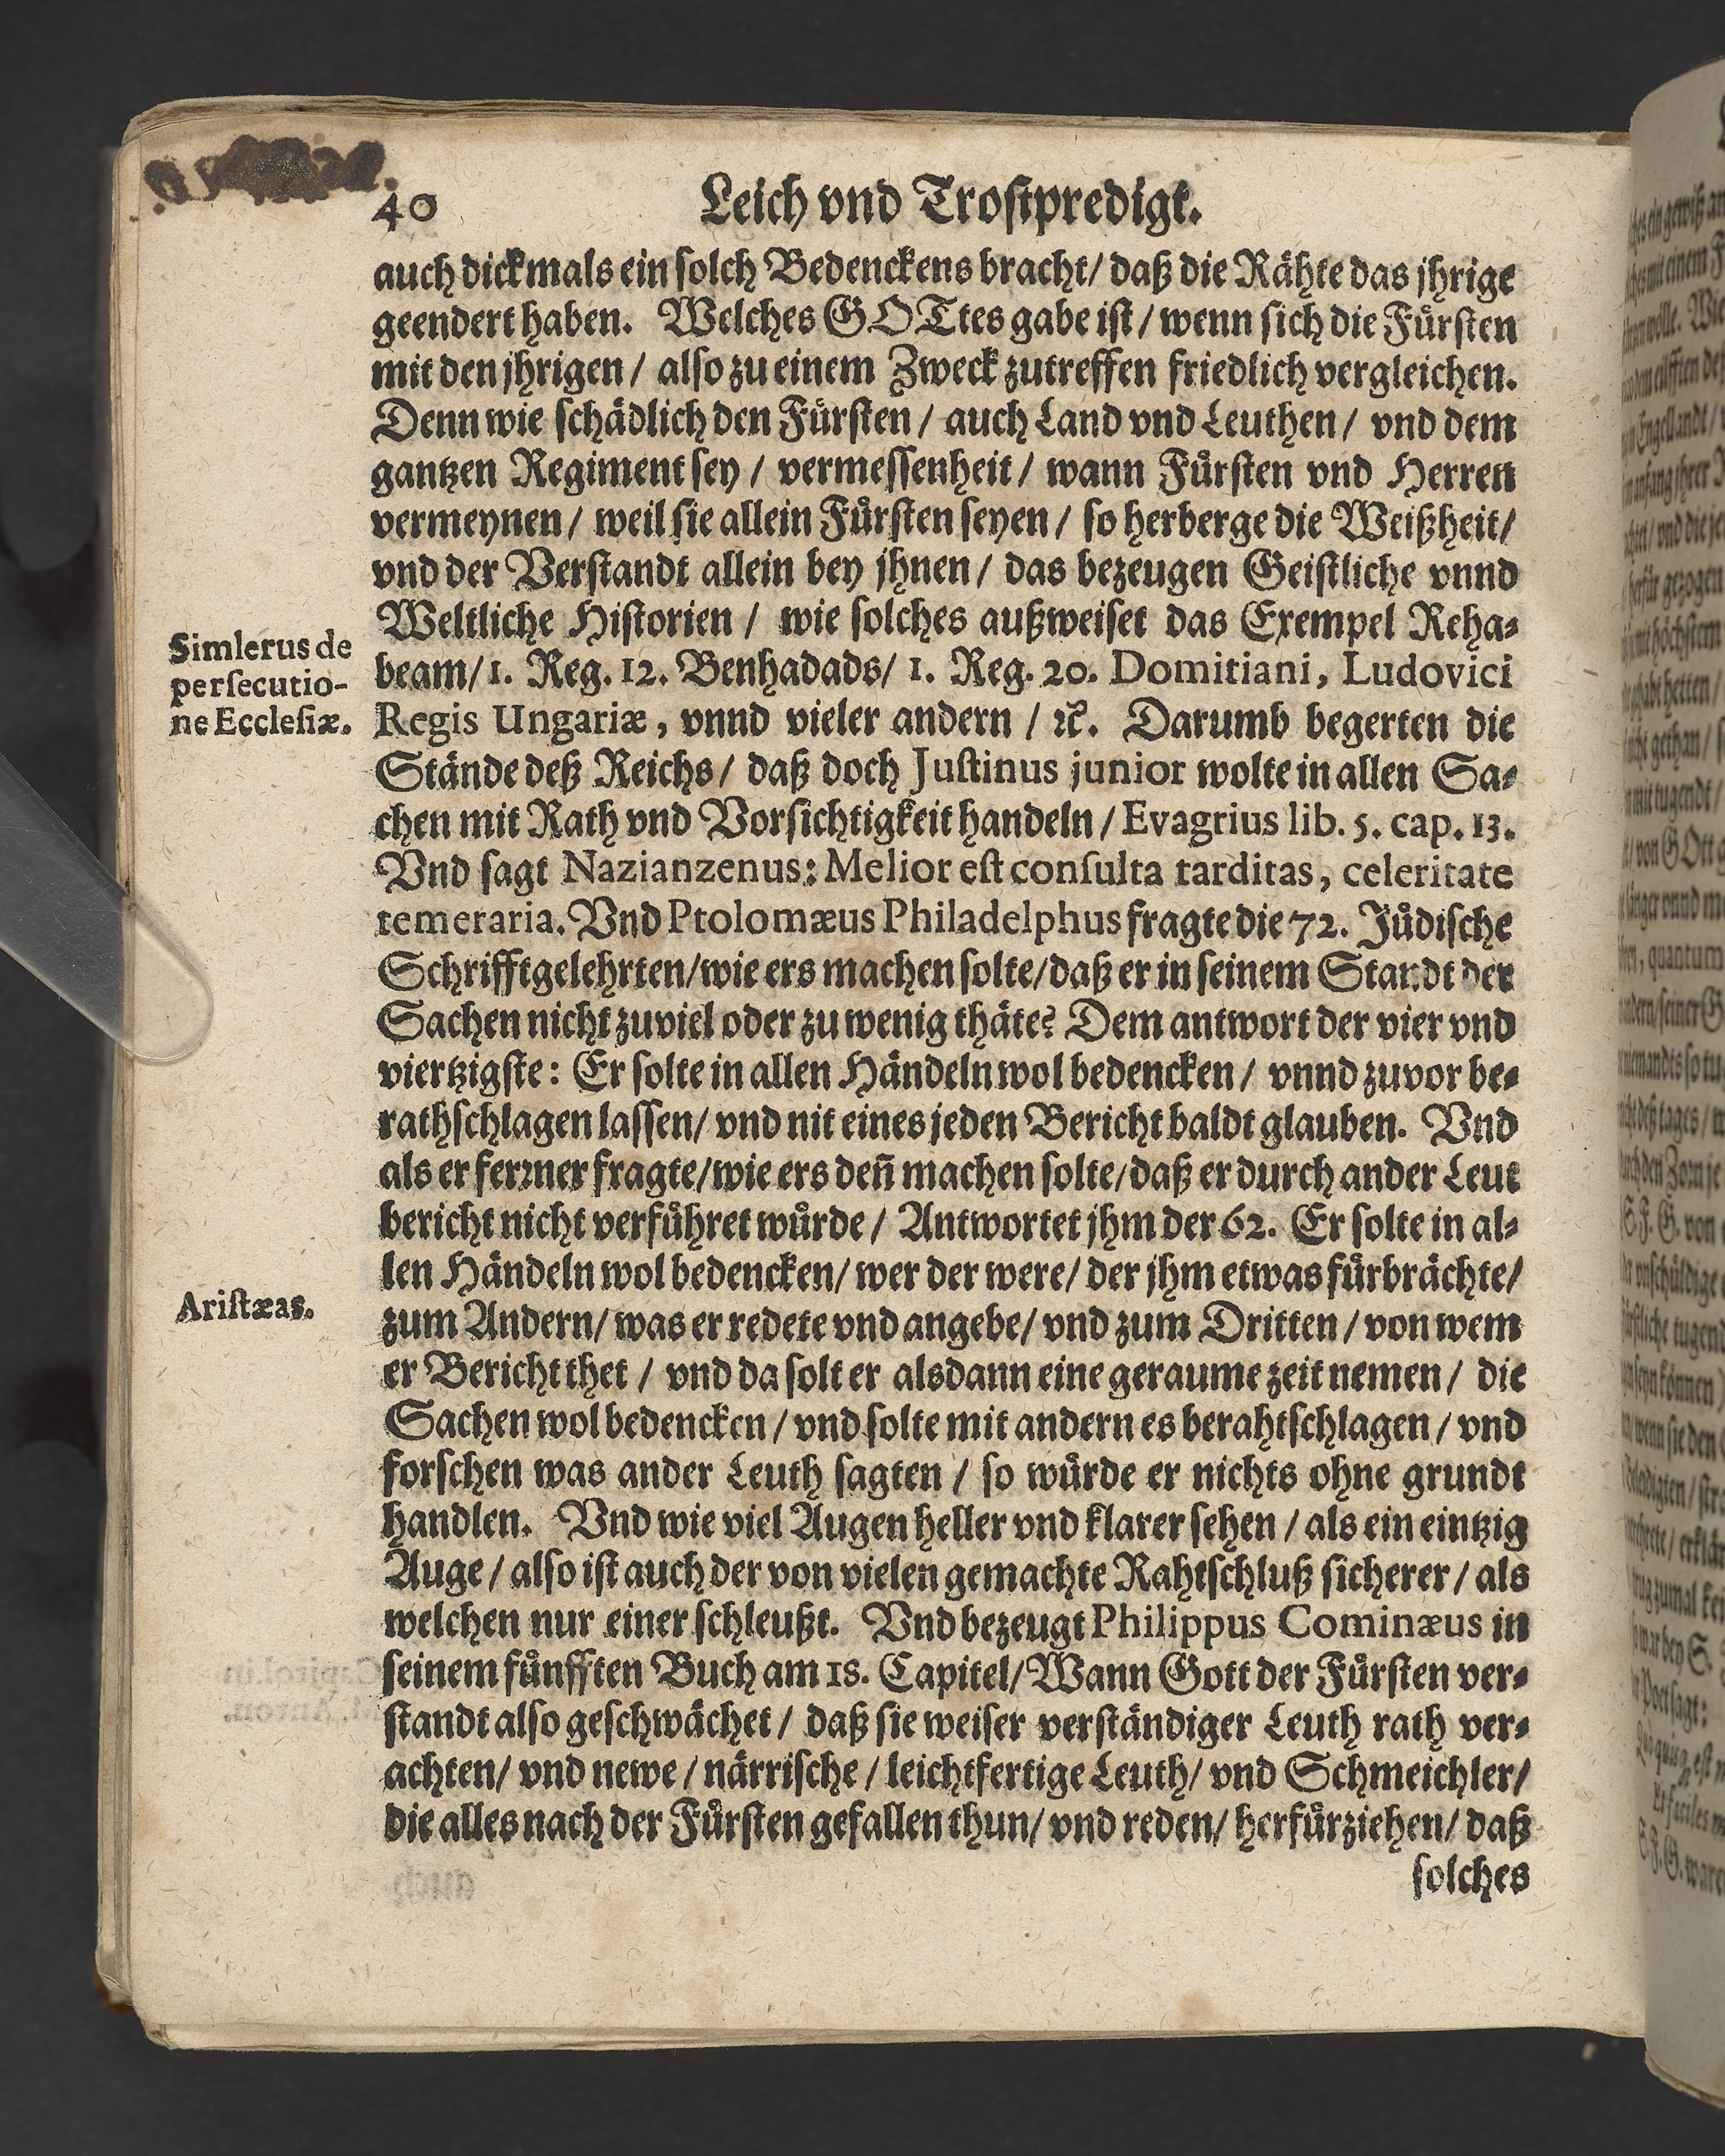 40 Leich vnd Trostpredigt.
auch dickmals ein solch Bedenckens bracht/ daß die Rähte das jhrige
geendert haben. Welches GOTtes gabe ist/ wenn sich die Fürsten
mit den jhrigen/ also zu einem Zweck zutreffen friedlich vergleichen.
Denn wie schädlich den Fürsten/ auch Land vnd Leuthen/ vnd dem
gantzen Regiment sey/ vermessenheit/ wann Fürsten vnd Herren
vermeynen/ weil sie allein Fürsten seyen/ so herberge die Weißheit/
vnd der Verstandt allein bey jhnen/ das bezeugen Geistliche vnnd
Weltliche Historien/ wie solches außweiset das Exempel Reha-
Simlerus de
persecutio-
ne Ecclesiæ.
beam/ 1. Reg. 12. Benhadads/ 1. Reg. 20. Domitiani, Ludovici
Regis Ungariæ, vnnd vieler andern/ ꝛc. Darumb begerten die
Stände deß Reichs/ daß doch Justinus junior wolte in allen Sa-
chen mit Rath vnd Vorsichtigkeit handeln/ Evagrius lib. 5. cap. 13.
Vnd sagt Nazianzenus: Melior est consulta tarditas, celeritate
temeraria. Vnd Ptolomæus Philadelphus fragte die 72. Jüdische
Schrifftgelehrten/ wie ers machen solte/ daß er in seinem Standt der
Sachen nicht zuviel oder zu wenig thäte? Dem antwort der vier vnd
viertzigste: Er solte in allen Händeln wol bedencken/ vnnd zuvor be-
rathschlagen lassen/ vnd nit eines jeden Bericht baldt glauben. Vnd
als er ferꝛner fragte/ wie ers deñ machen solte/ daß er durch ander Leut
bericht nicht verführet würde/ Antwortet jhm der 62. Er solte in al-
len Händeln wol bedencken/ wer der were/ der jhm etwas fürbrächte/
Aristæas.
zum Andern/ was er redete vnd angebe/ vnd zum Dritten/ von wem
er Bericht thet/ vnd da solt er alsdann eine geraume zeit nemen/ die
Sachen wol bedencken/ vnd solte mit andern es berahtschlagen/ vnd
forschen was ander Leuth sagten/ so würde er nichts ohne grundt
handlen. Vnd wie viel Augen heller vnd klarer sehen/ als ein eintzig
Auge/ also ist auch der von vielen gemachte Rahtschluß sicherer/ als
welchen nur einer schleußt. Vnd bezeugt Philippus Cominæus in
seinem fünfften Buch am 18. Capitel/ Wann Gott der Fürsten ver-
standt also geschwächet/ daß sie weiser verständiger Leuth rath ver-
achten/ vnd newe/ närrische/ leichtfertige Leuth/ vnd Schmeichler/
die alles nach der Fürsten gefallen thun/ vnd reden/ herfürziehen/ daß
solches